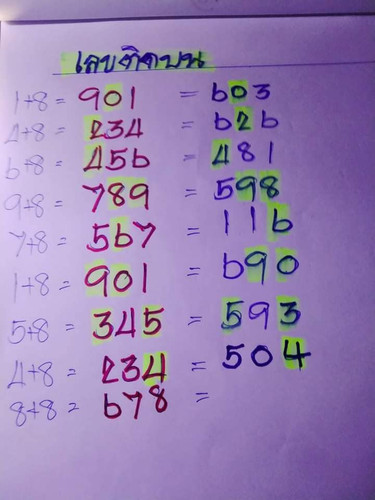 เลขติดบน
1+8 = 901 = 603
4+8 = 234 = 626
6+8 = 456 = 481
9+8 = 789 = 598
7+8 = 567 = 116
1+8 = 901 = 690
5+8 = 345 = 593
4+8 = 234 = 504
8+8 = 678 =